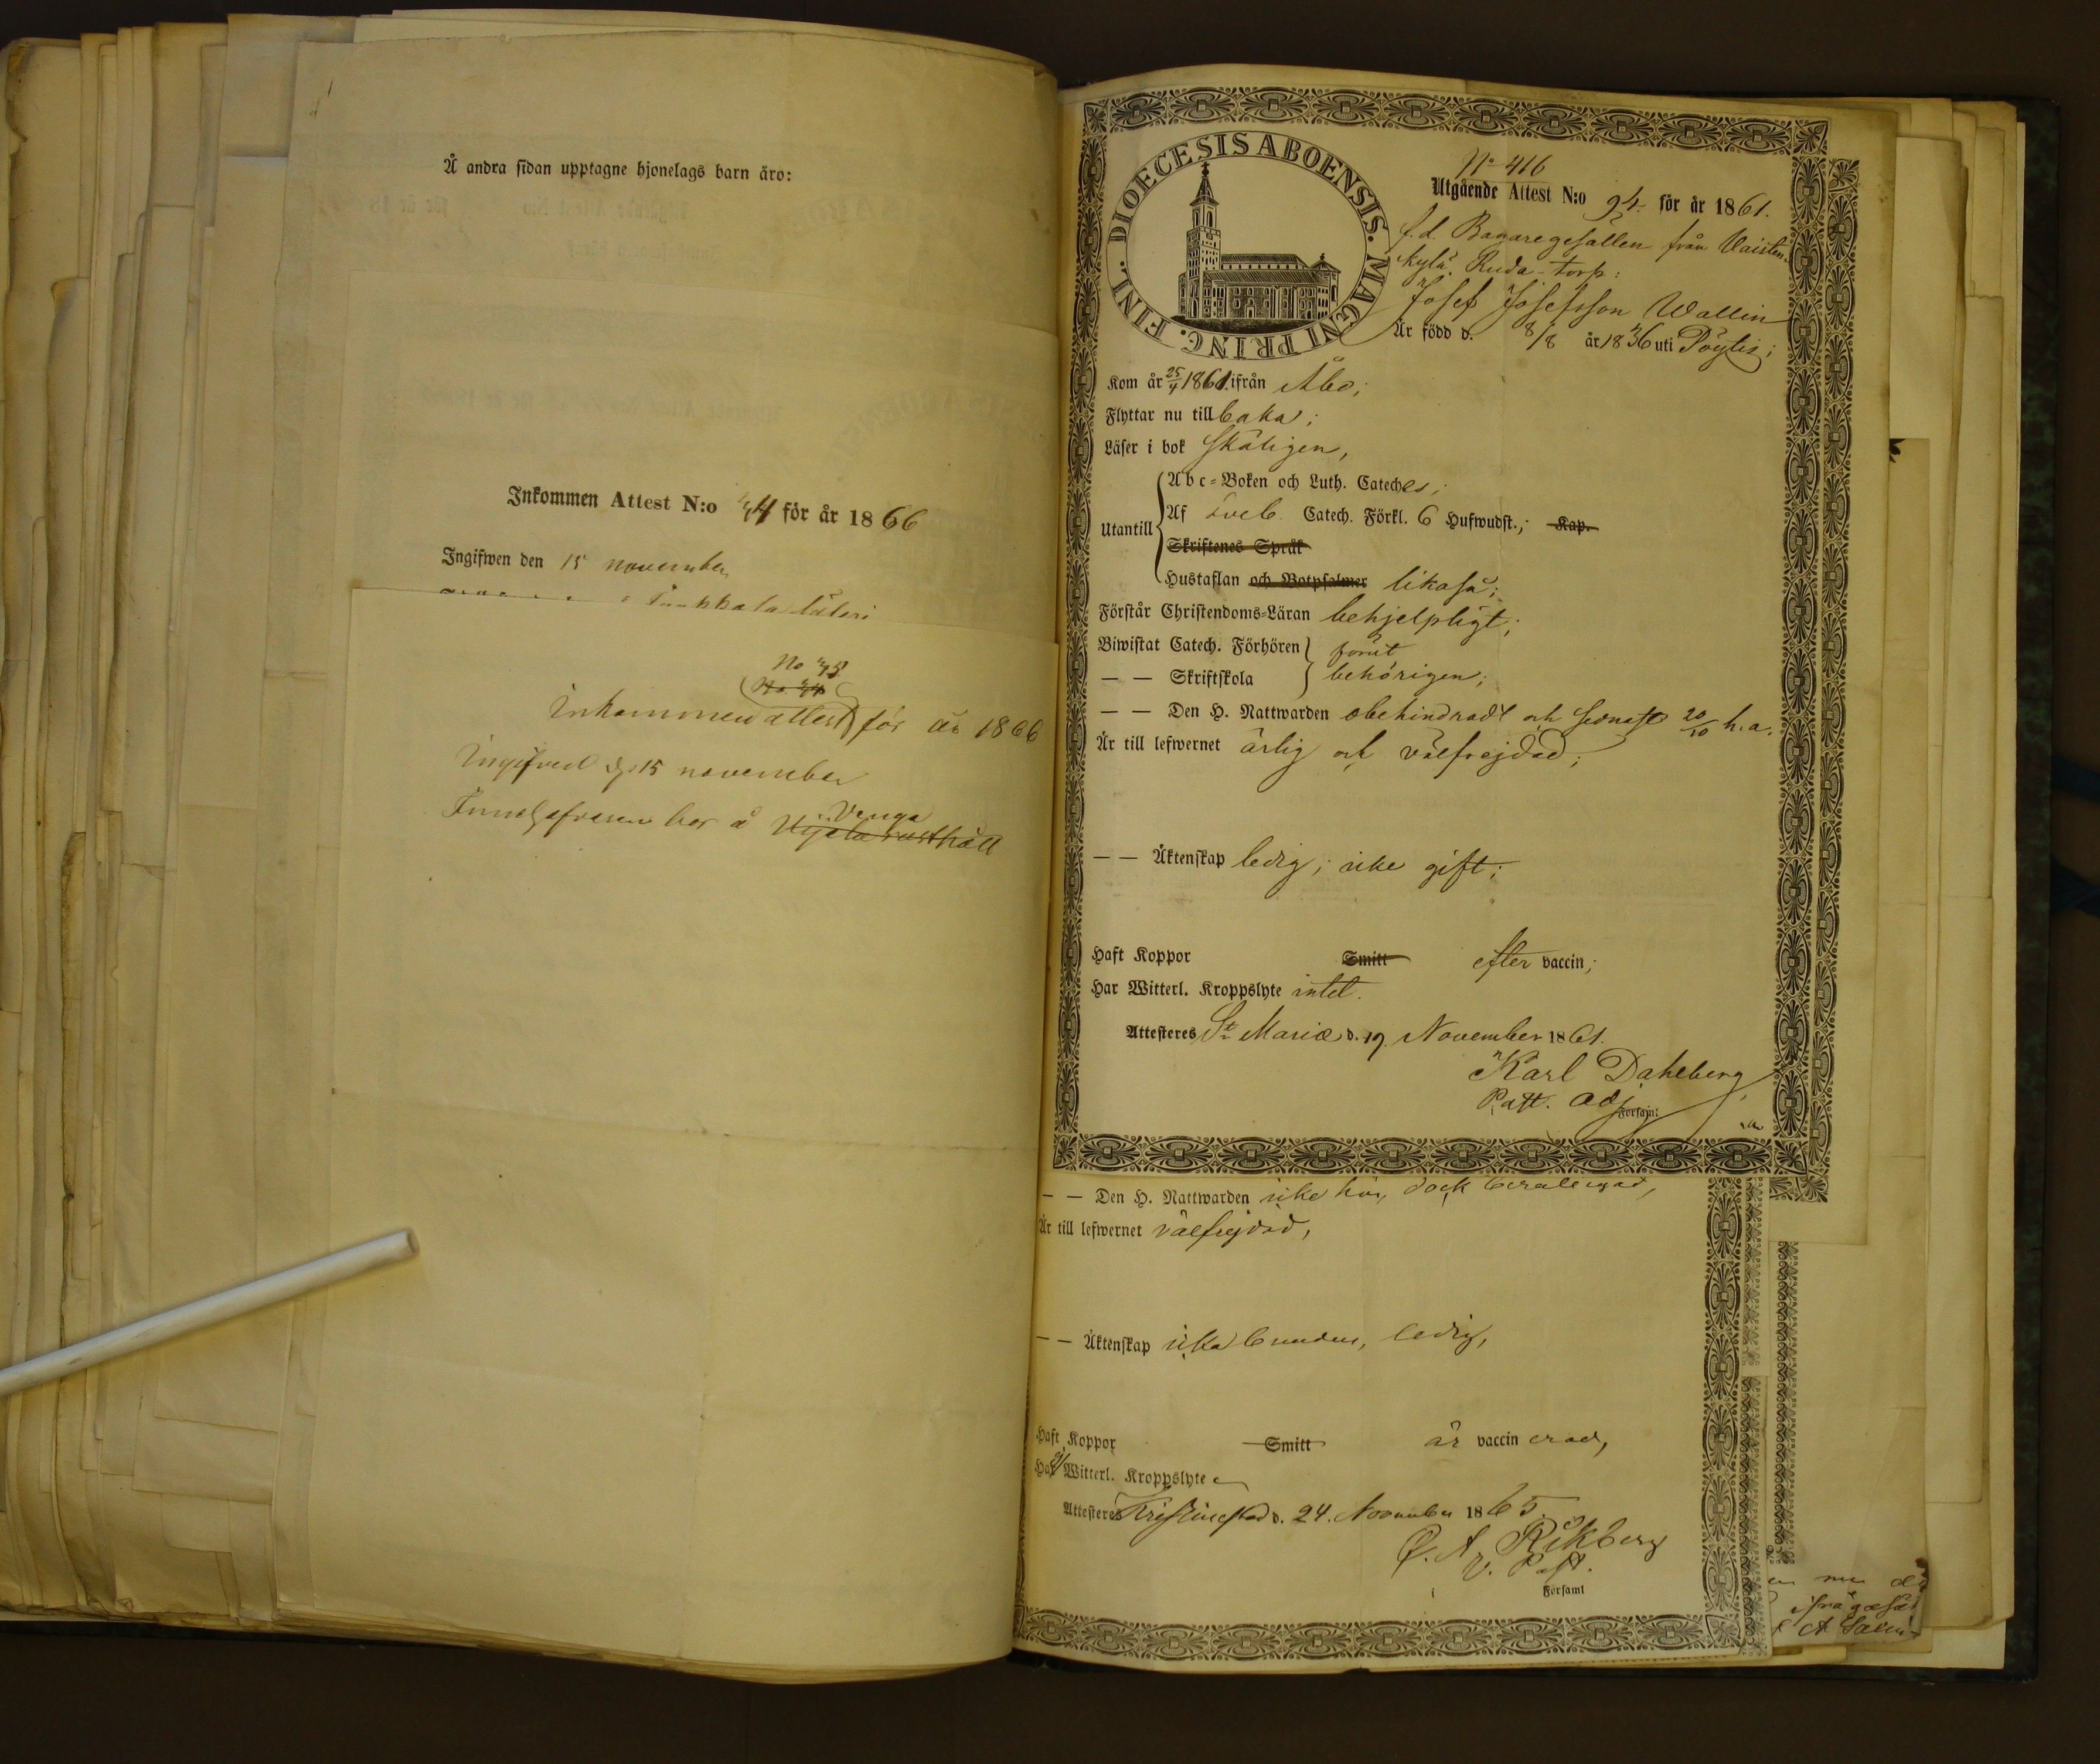 Å andra sidan upptagne hjonelags barn äro:
Inkommen Attest N:o 44 för år 1866
Ingifwen den 15 november
No 45
No 44
Inkommen attest för år 1866
Ingifven d. 15 november
Innehafvaren bor å Venga
rusthåll
DIOECESIS ABOENSIS. MAGNI PRINC. FINL.
No 416
Utgående Attest N:o 94 för år 1861.
f.d. Bagaregesällen från Vaisten-
kylä Ruda-torp:
Josef Josefsson Wallin
Är född d. 8/8 år 1836 uti Pöytis;
Kom år 25/4 1861 ifrån Åbo;
Flyttar nu tillbaka;
Läser i bok skäligen,
Utantill
Abc-Boken och Luth. Cateches;
Af Sveb. Catech. Förkl. 6 Hufwudst.; Kap.
Skriftenes Språk
Hustaflan och Botpsalmer likaså;
Förstår Christendoms-Läran behjelpligt;
Biwistat Catech. Förhören förut
— — Skriftskola behörigen;
— — Den H. Nattwarden obehindradt och senast 20/10 h.a.
Är till lefwernet ärlig och välfrejdad;
— — Äktenskap ledig; icke gift;
Haft Koppor Smitt efter vaccin;
Har Witterl. Kroppslyte intet.
Attesteres St Mariæ d. 19 November 1861.
Karl Dahlberg
Past. Adj.
Församl:
— — Den H. Nattwarden icke här, dock
Är till lefwernet välfrejdad,
— — Äktenskap icke bunden, ledig,
Haft Koppor Smitt är vaccinerad,
Har ej Witterl. Kroppslyte
Attesteres Kristinestad d. 24. November 1865.
V. Past.
Församl